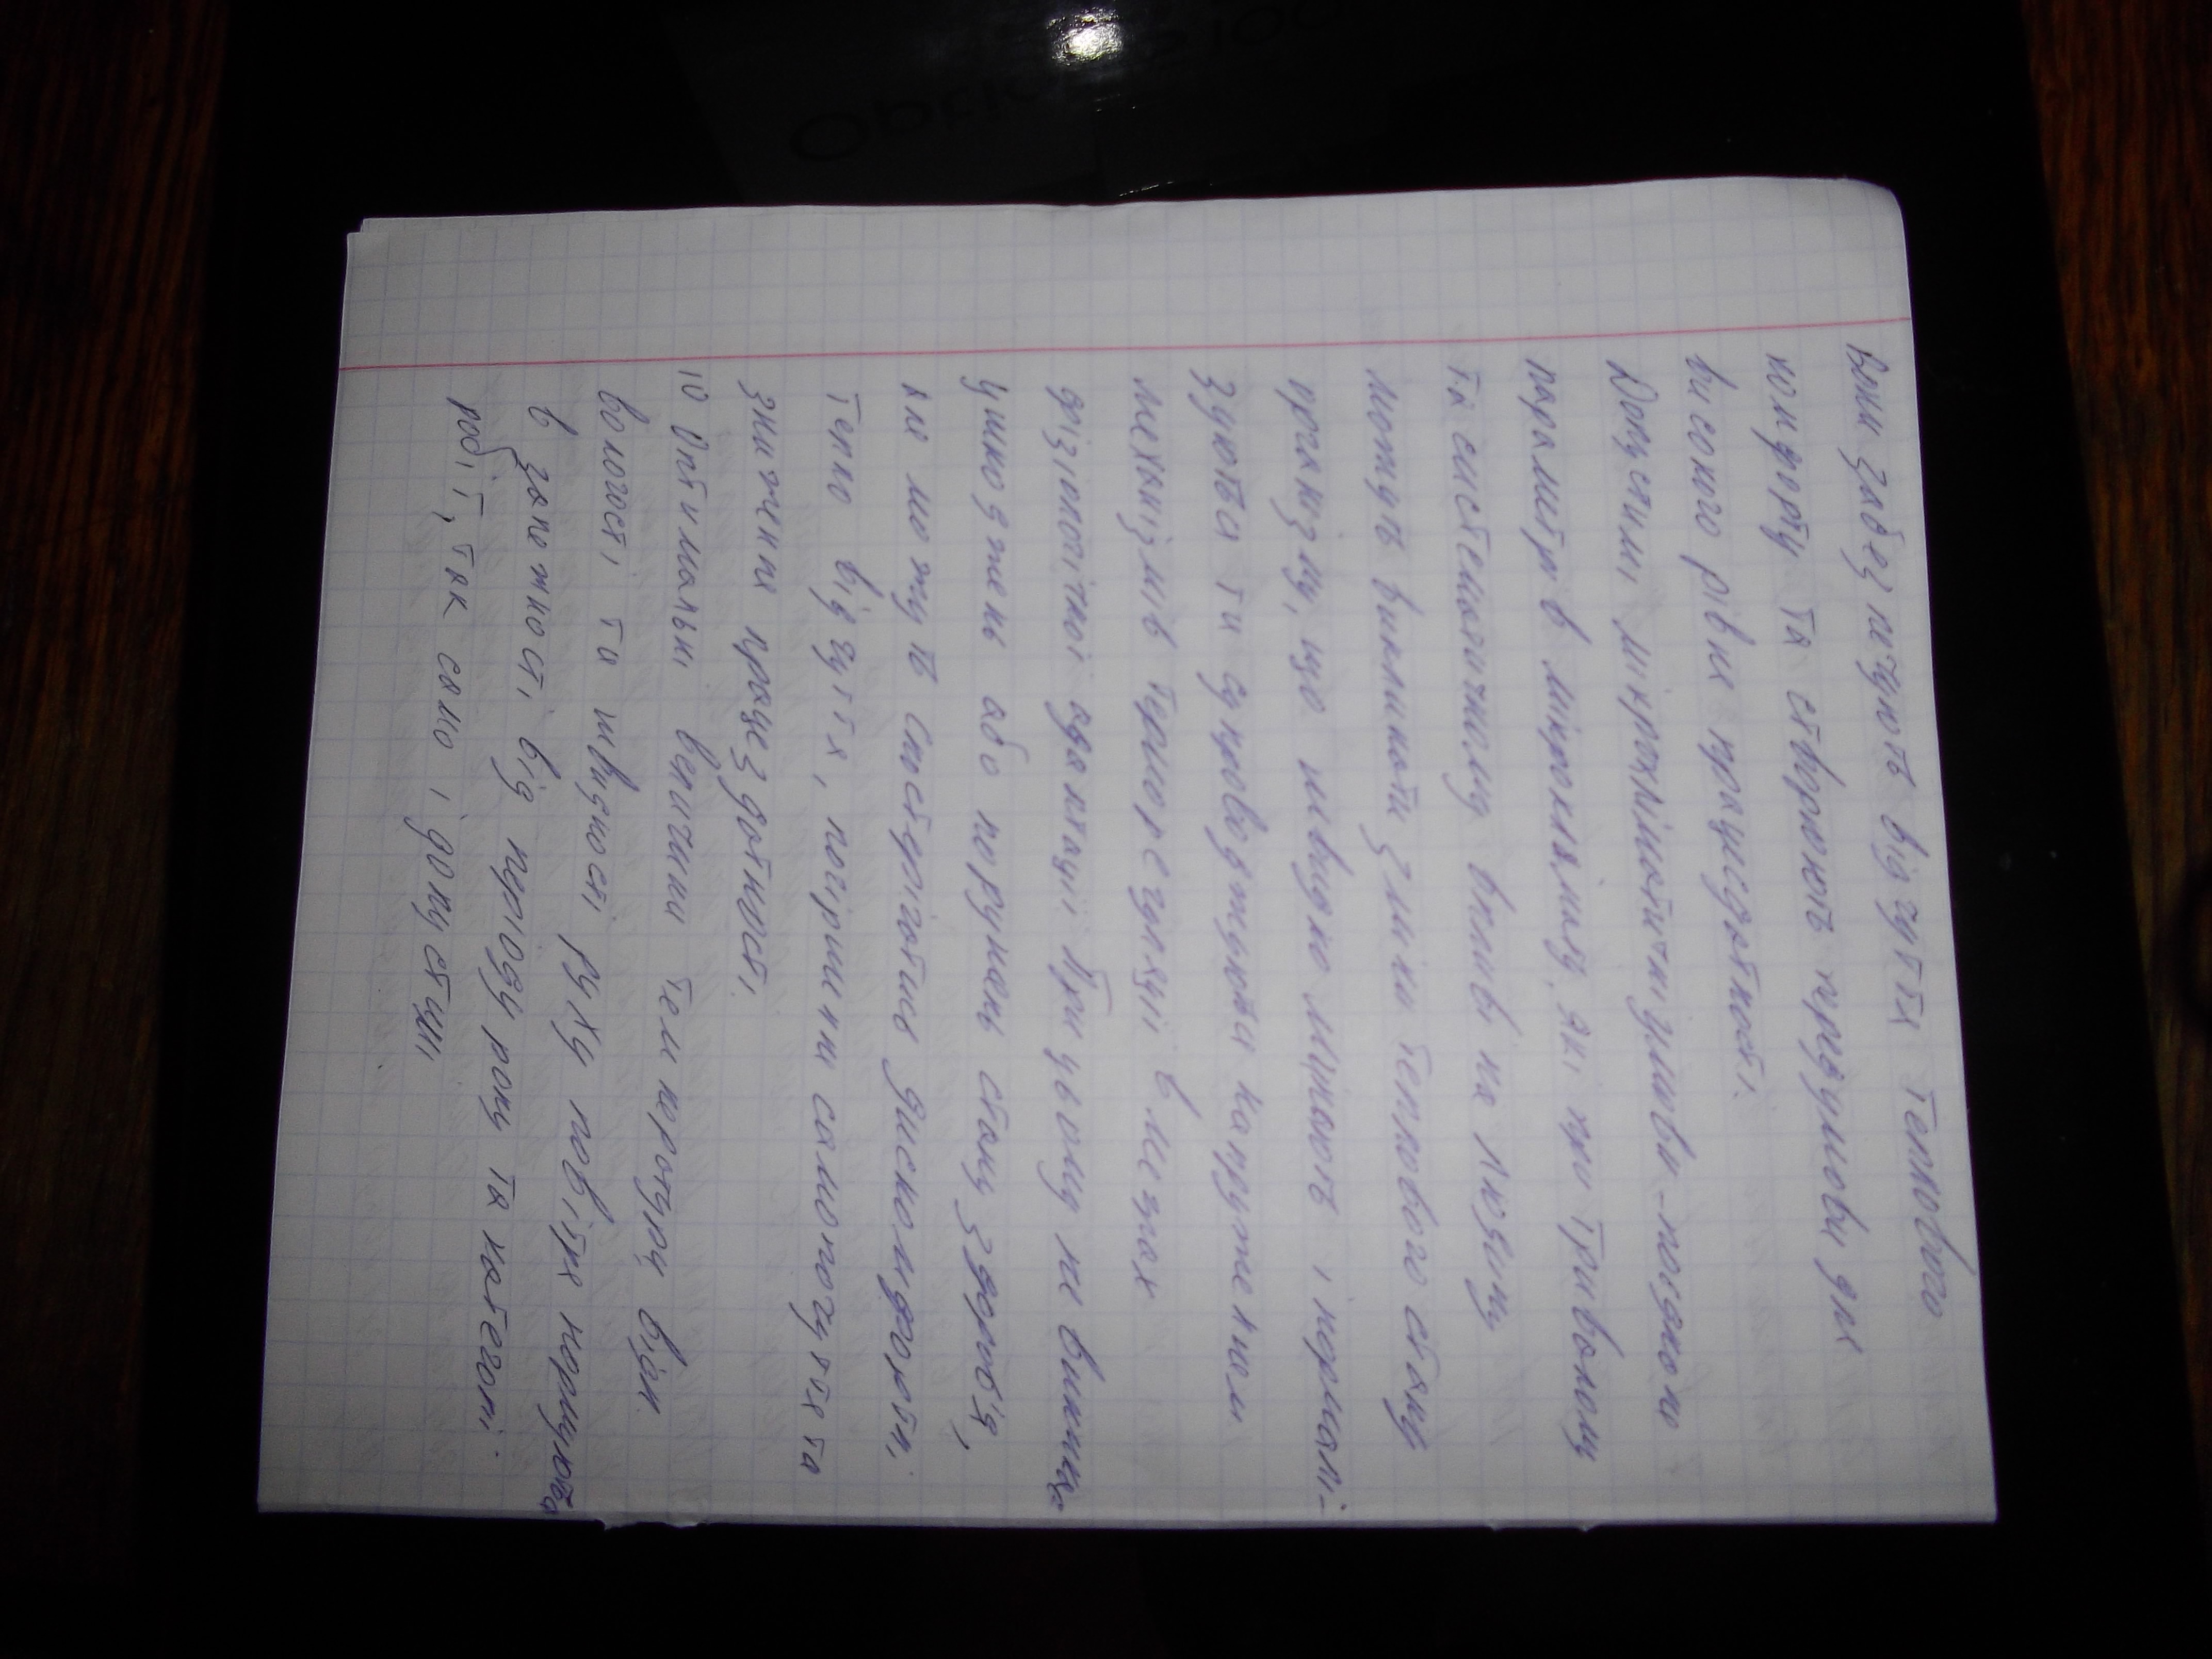 Вони забезпечують відчуття теплового
комфорту та створюють передумови для
високого рівня працездатності.
Допустимі мікрокліматичні умови - поєднано
параметрів мікроклімату, які при тривалому
та систематичному впливі на людину
можуть викликати зміни теплового стану
організму, що швидко минають і нормалі-
зуються та супроводжуються напруженням
механізмів терморегуляції в межах
фізіологічної адаптації. При цьому не виникає
ушкоджень або порушень стану здоров'я,
але можуть спостерігатися дискомфортні
тепло відчуття, погіршення самопочуття та
зниження працездатності.
10 Оптимальні величини температури відн.
вологості та швидкості руху повітря нормуються
в залежності від періоду року та категорії
робіт, так само і допустимі